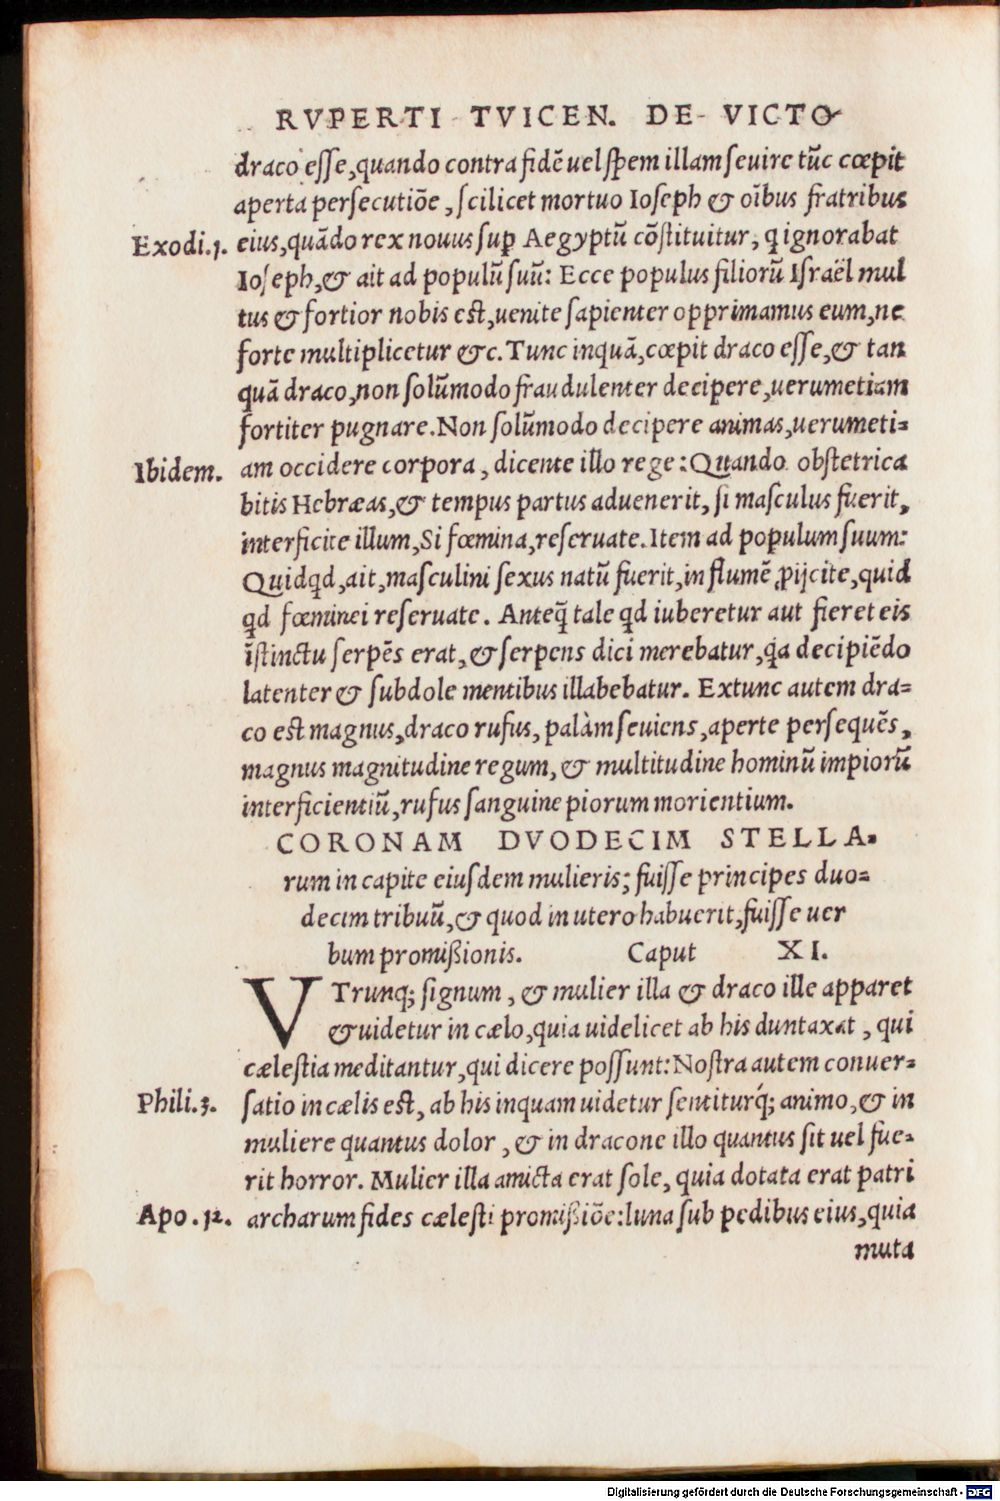 RVPERTI TVICEN. DE VICTO
draco esse, quando contra fidē uel spem illam seuire tūc cœpit
aperta persecutiōe, scilicet mortuo Ioseph & oībus fratribus
Exodi.1. eius, quādo rex nouus sup̱ Aegyptū cōstituitur, q ignorabat
Ioseph, & ait ad populū suū: Ecce populus filiorū Israël mul
tus & fortior nobis est, uenite sapienter opprimamus eum, ne
forte multiplicetur &c. Tunc inquā, cœpit draco esse, & tan
quā draco, non solūmodo fraudulenter decipere, uerumetiam
fortiter pugnare. Non solūmodo decipere animas, uerumeti=
Ibidem. am occidere corpora, dicente illo rege: Quando obstetrica
bitis Hebræas, & tempus partus aduenerit, si masculus fuerit,
interficite illum, Si fœmina, reseruate. Item ad populum suum:
Quidqd, ait, masculini sexus natū fuerit, in flumē ꝓijcite, quid
qd fœminei reseruate. Anteq̄ tale qd iuberetur aut fieret eis
īstinctu serpēs erat, & serpens dici merebatur, qa decipiēdo
latenter & subdole mentibus illabebatur. Extunc autem dra=
co est magnus, draco rufus, palàm seuiens, aperte persequēs,
magnus magnitudine regum, & multitudine hominū impiorū
interficientiū, rufus sanguine piorum morientium.
CORONAM DVODECIM STELLA=
rum in capite eiusdem mulieris; fuisse principes duo=
decim tribuū, & quod in utero habuerit, fuisse uer
bum promißionis. Caput XI.
VTrunq; signum, & mulier illa & draco ille apparet
& uidetur in cælo, quia uidelicet ab his duntaxat, qui
cælestia meditantur, qui dicere possunt: Nostra autem conuer=
Phili.3. satio in cælis est, ab his inquam uidetur sentiturq́; animo, & in
muliere quantus dolor, & in dracone illo quantus sit uel fue=
rit horror. Mulier illa amicta erat sole, quia dotata erat patri
Apo.12. archarum fides cælesti promißiōe: luna sub pedibus eius, quia
muta
Digitalisierung gefördert durch die Deutsche Forschungsgemeinschaft - DFG